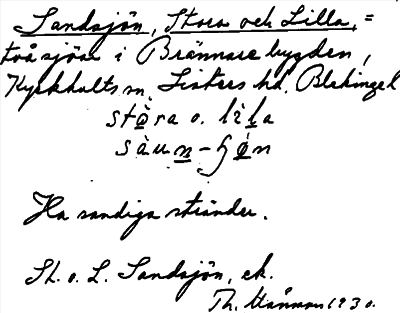 Sandsjön, Stora och Lilla, =
två sjöar i Brännarebygden,
Kyrkhults sn. Listers hd. Blekinge l
stòra o. lìla
sàun-ʃǿn
Ha sandiga stränder.
St. o. L. Sandsjön, ek.
Th. 1930.